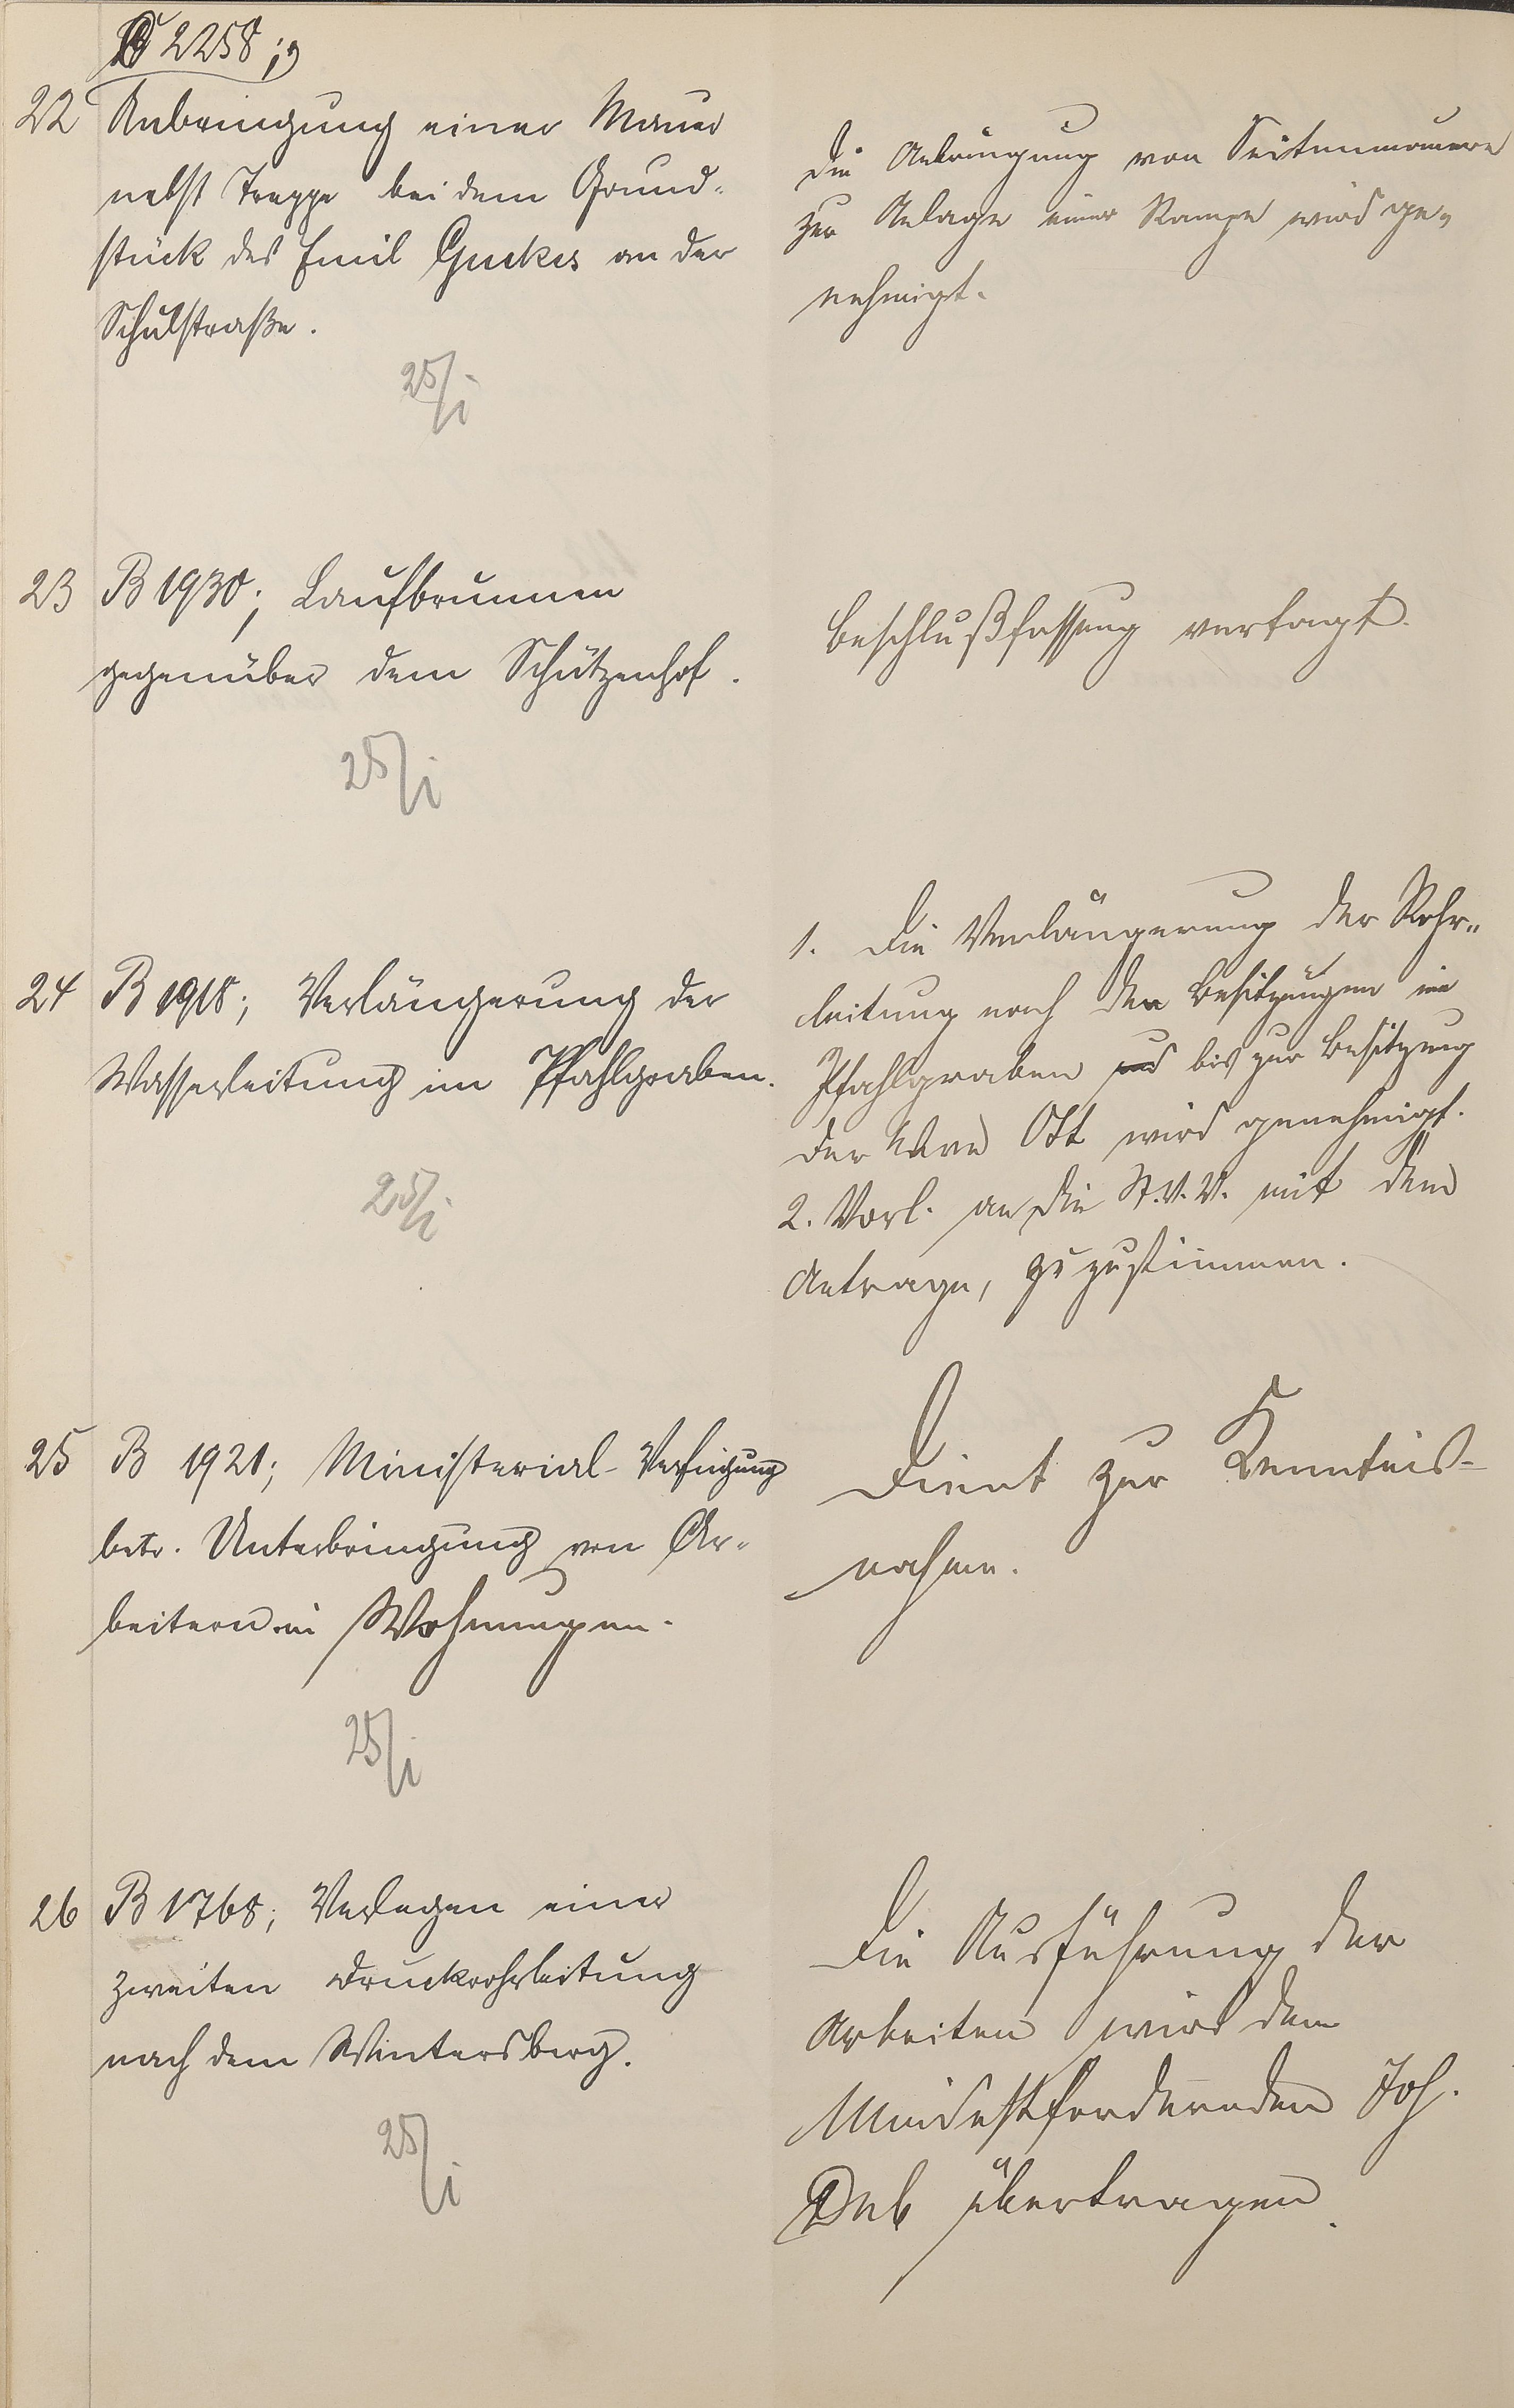 B 2258;
22 Anbringung einer Mauer
nebst Treppe bei dem Grund-
stück des Emil Guckes an der
Schulstraße.
25/I
Die Anbringung von Seitenmauern
zur Anlage einer Rampe wird ge-
nehmigt.
23 B 1930; Laufbrunnen
gegenüber dem Schützenhof.
25/I
Beschlußfassung vertagt.
24 B 1918; Verlängerung der
Wasserleitung im Pfahlgraben.
25/I
1. Die Verlängerung der Rohr-
leitung nach den Besitzungen im
Pfahlgraben und bis zur Besitzung
der Ott wird genehmigt.
2. Vorl. an die St.V.V. mit dem
Antrage, zuzustimmen.
25 B 1921; Ministerial-Verfügung
betr. Unterbringung von Ar-
beitern in Wohnungen.
25/I
Dient zur Kenntnis-
nahme.
26 B 1768; Verlegen einer
zweiten Druckrohrleitung
nach dem Wintersberg.
25/I
Die Ausführung der
Arbeiten wird dem
Mindestfordernden Joh.
übertragen.